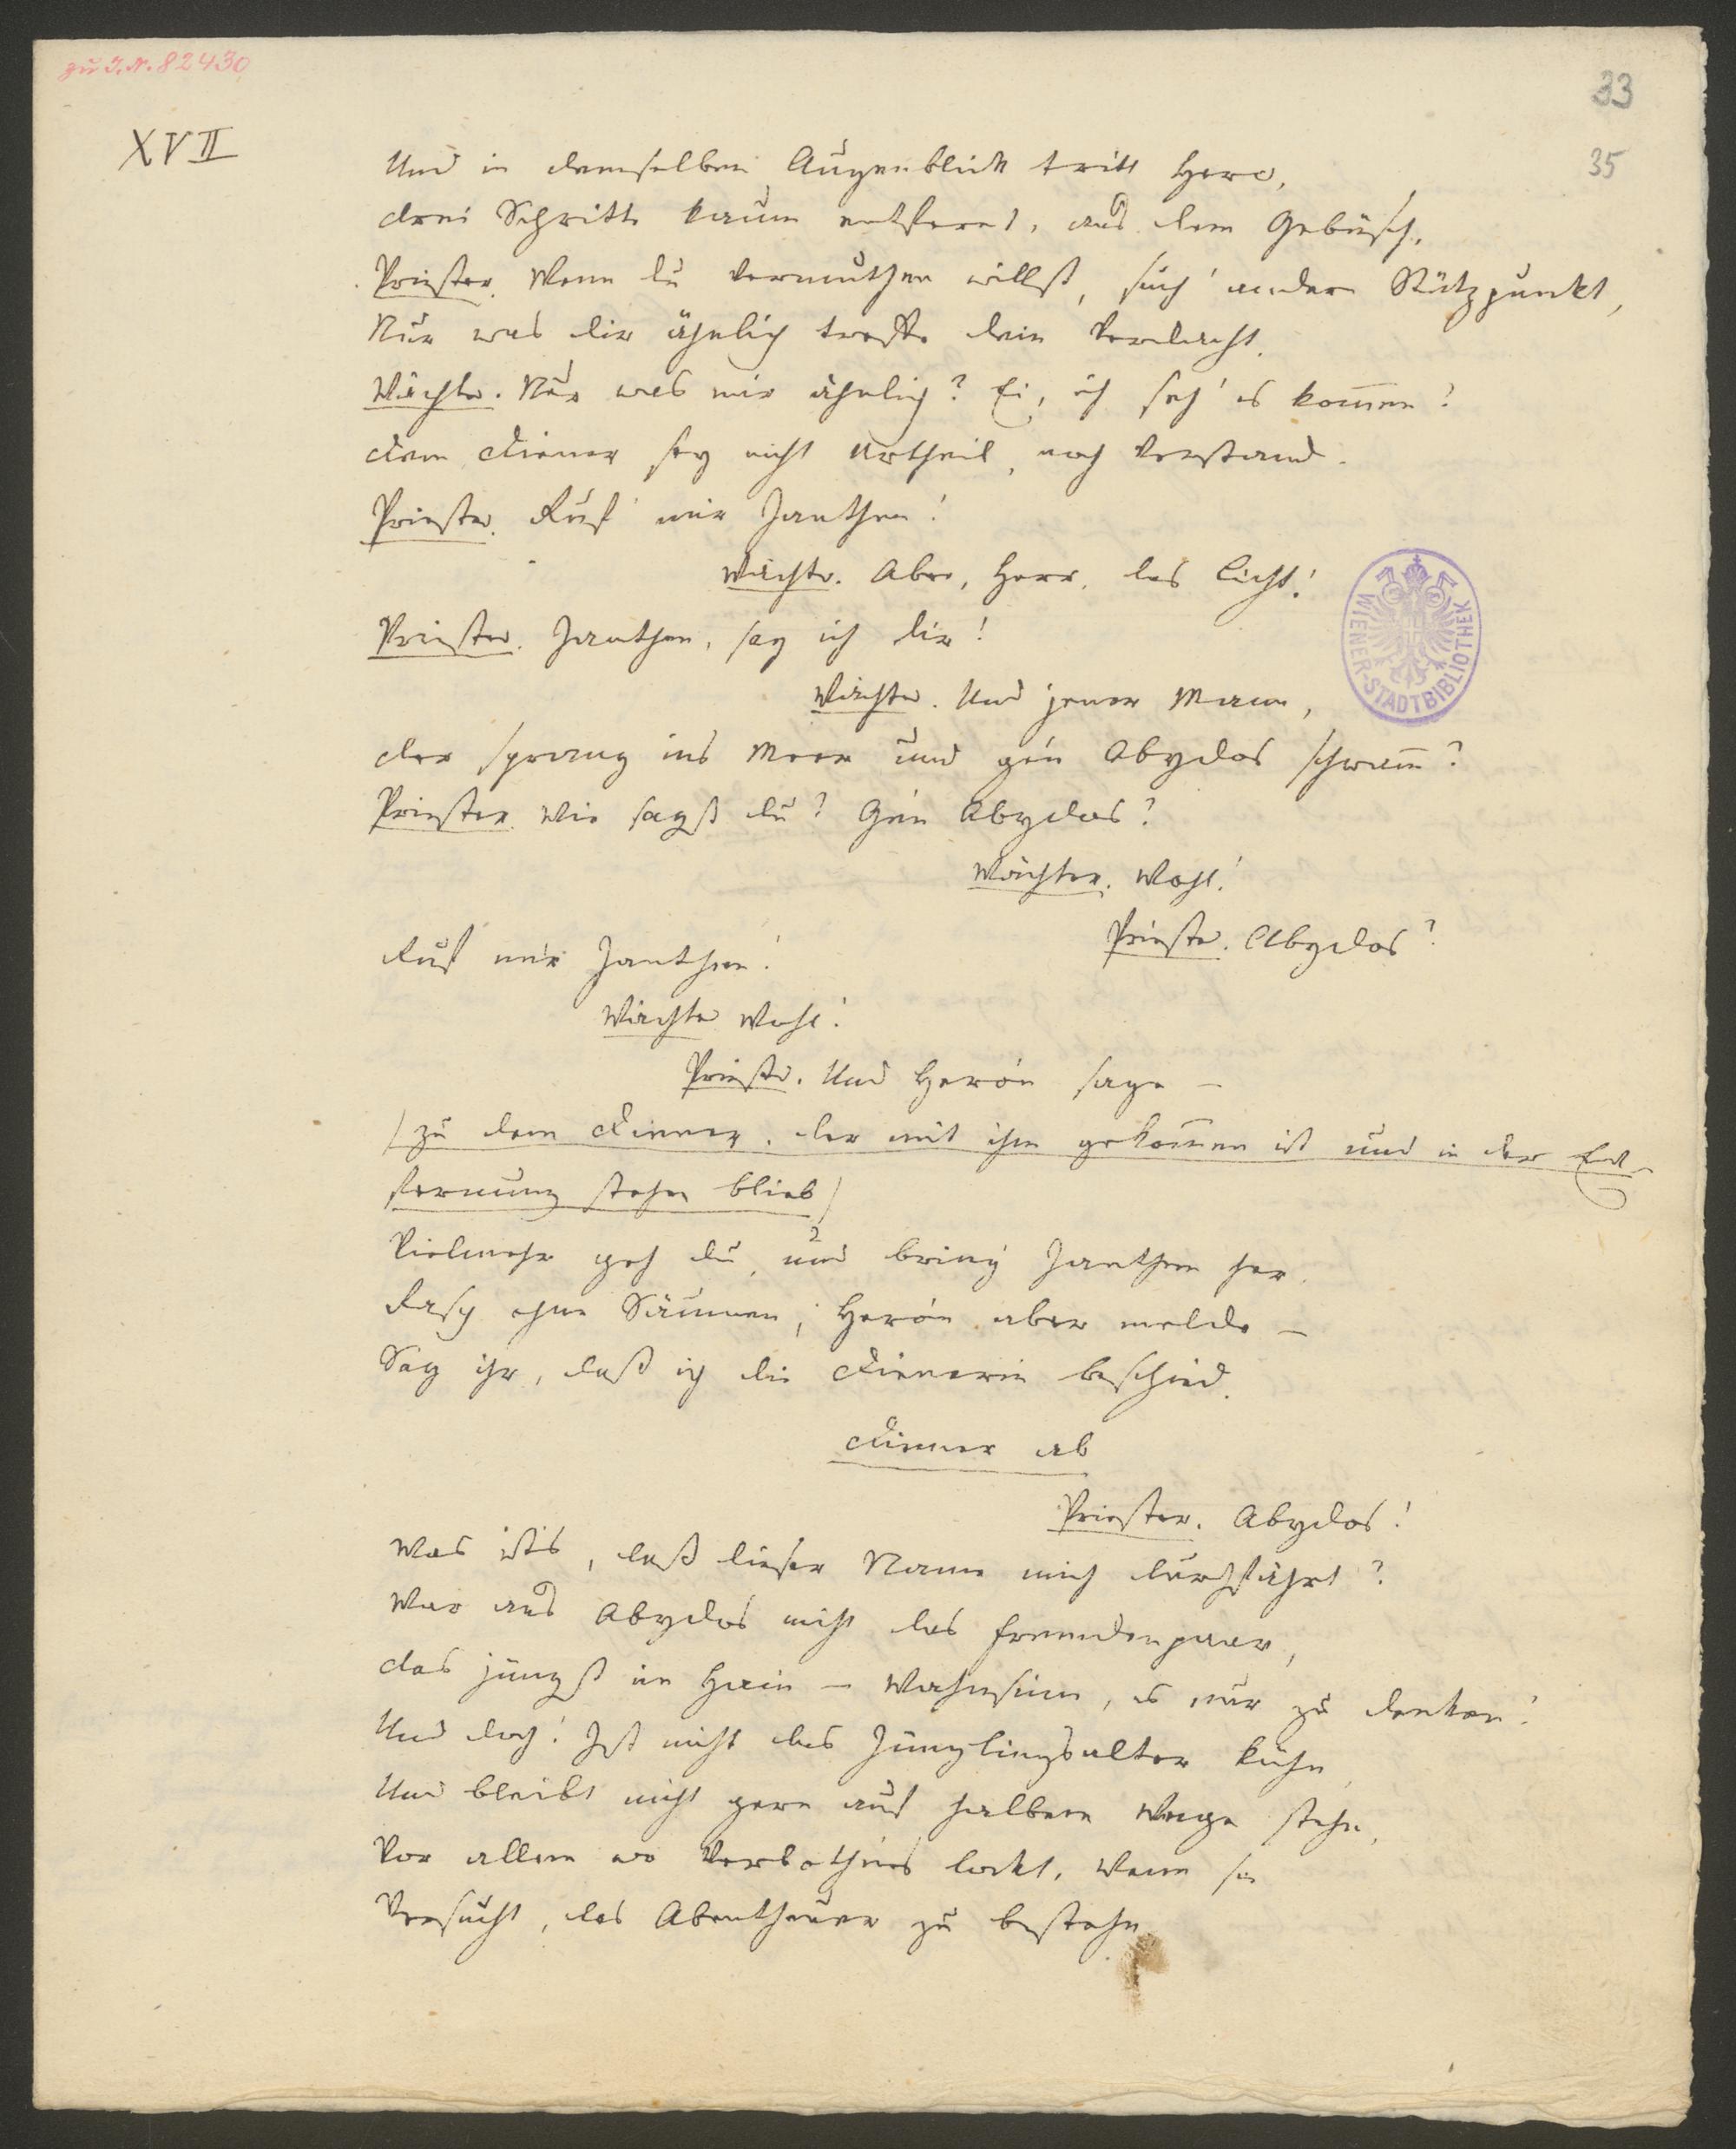 zu I.N. 82430
33
35
XVII
Und in demselben Augenblick tritt Hero,
drei Schritte kaum entfernt, aus dem Gebüsch.
Priester. Wenn du vermuthen willst, such' andern Stützpunkt,
Nur was dir ähnlich treffe dein Verdacht.
Wächter. Nur was mir ähnlich? Ei, ich seh' es kom̄en!
dem Diener sey nicht Urtheil, noch Verstand.
Priester. Ruf' mir Janthen!
Wächter. Aber, Herr, das Licht!
Priester. Janthen, sag ich dir!
Wächter. Und jener Mann,
der sprang ins Meer und gen Abydos schwam̄?
Priester. Wie sagst du? Gen Abydos?
Wächter. Wohl!
Priester. Abydos?
Ruf mir Janthen!
Wächter Wohl!
Priester. Und Heron sage –
/zu dem Diener, der mit ihm gekom̄en ist und in der Ent-
fernung stehn blieb/
Vielmehr geh du, und bring Janthen her.
Rasch ohne Säumen; Heron aber melde –
Sag ihr, daß ich die Dienerin beschied.
Diener ab
Priester. Abydos!
Was ists, daß dieser Name mich durchfährt?
War aus Abydos nicht das Fremdenpaar,
das jüngst im Hain – Wahnsinn, es nur zu denken!
Und doch! Ist nicht das Jünglingsalter kühn
Und bleibt nicht gern auf halbem Wege stehn,
Vor allem wo Verbothnes lockt. Wenn sie
Versucht, das Abentheuer zu bestehn
WIENER-STADTBIBLIOTHEK